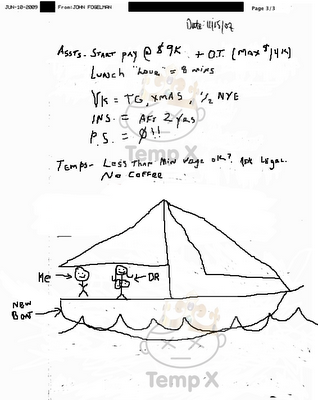 JUN-10-2009 From:JOHN FOGELMAN Page 3/3
Date: 11/15/02
ASSTS. - START PAY @ $9K + O.T. (MAX $14K)
LUNCH "HOUR" = 8 MINS
VK = TG, XMAS, 1/2 NYE
INS. = AFT 2 YRS
P.S. = Ø!!
Temp X
TEMPS - LESS THAN MIN WAGE OK? ASK LEGAL.
NO COFFEE
ME
DR
NEW
BOAT
Temp X